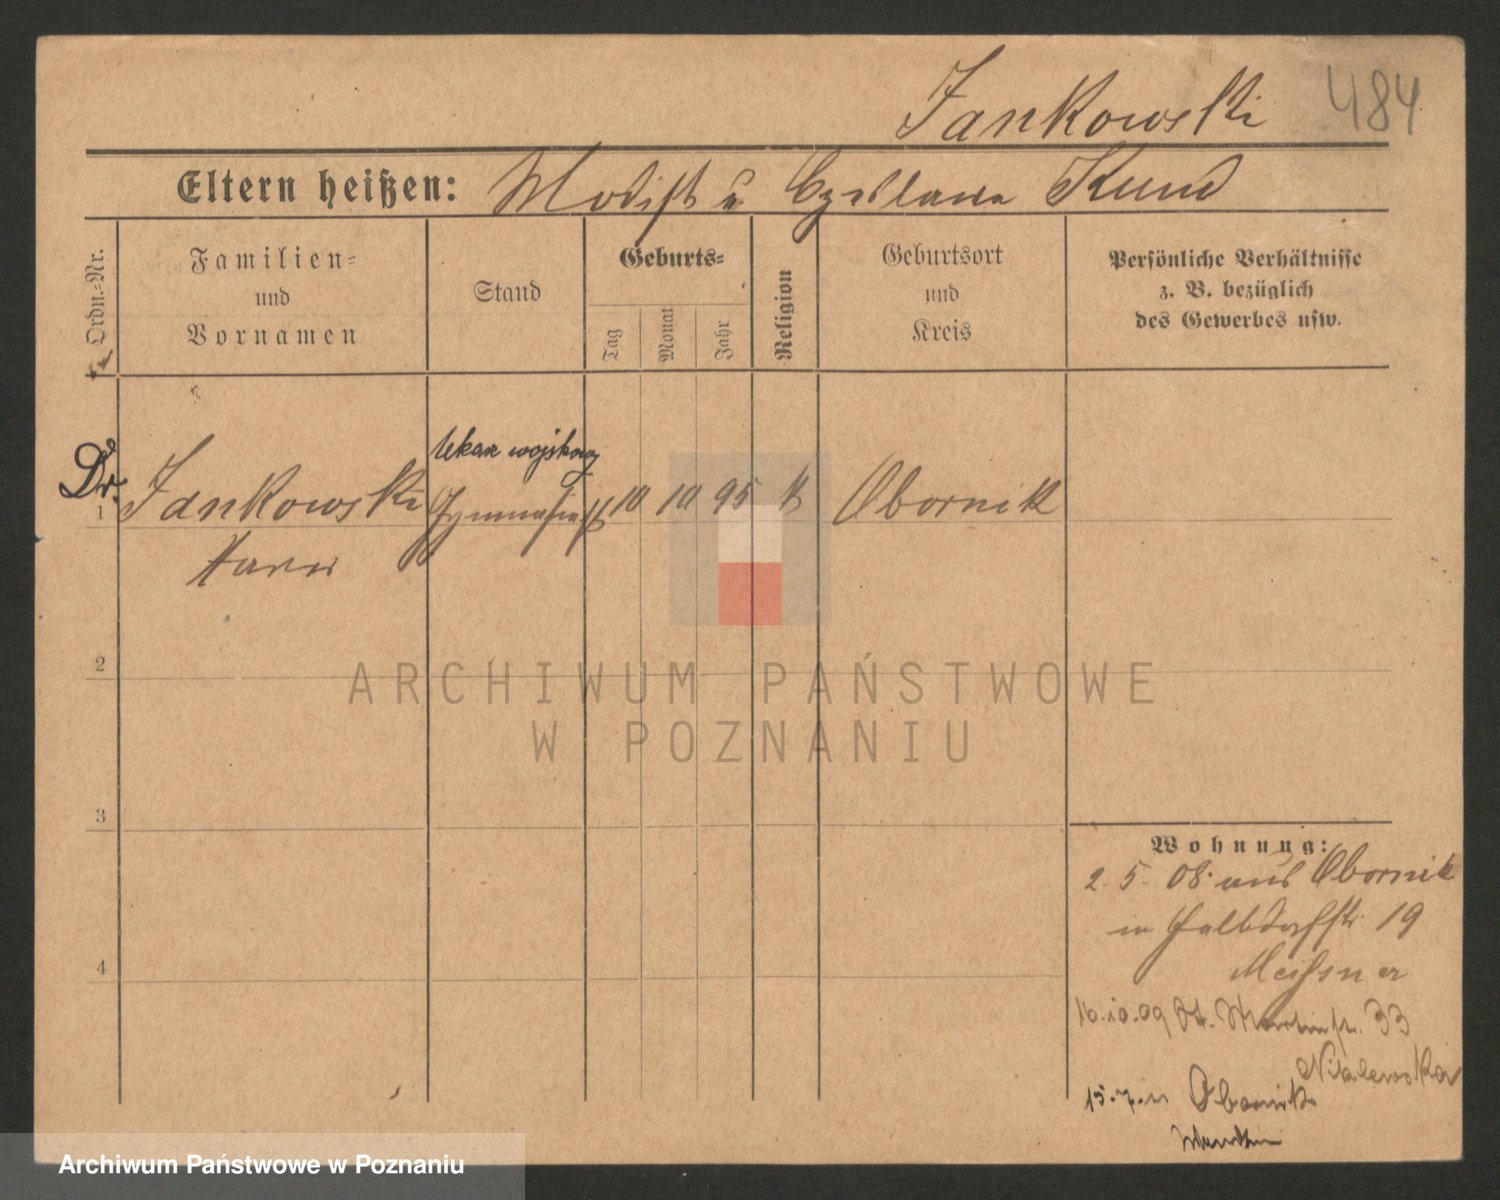 Jankowski 484
Eltern heißen: Modist u Kund
Ordn.-Nr.
Familien-
und
Vornamen
Stand
Geburts-
Tag
Monat
Jahr
Religion
Geburtsort
und
Kreis
Persönliche Verhältnisse
z. B. bezüglich
des Gewerbes usw.
lekarz wojskowy
Dr.
1 Jankowski Gymnasiast 10 10 95 k Obornik
2
3
4
Wohnung:
2. 5. 08. aus Obornik
in Halbdorfstr 19
Meißner
16.10.09 St. Martinstr. 33
15.7.11 Obornik
ARCHIWUM PAŃSTWOWE
W POZNANIU
Archiwum Państwowe w Poznaniu